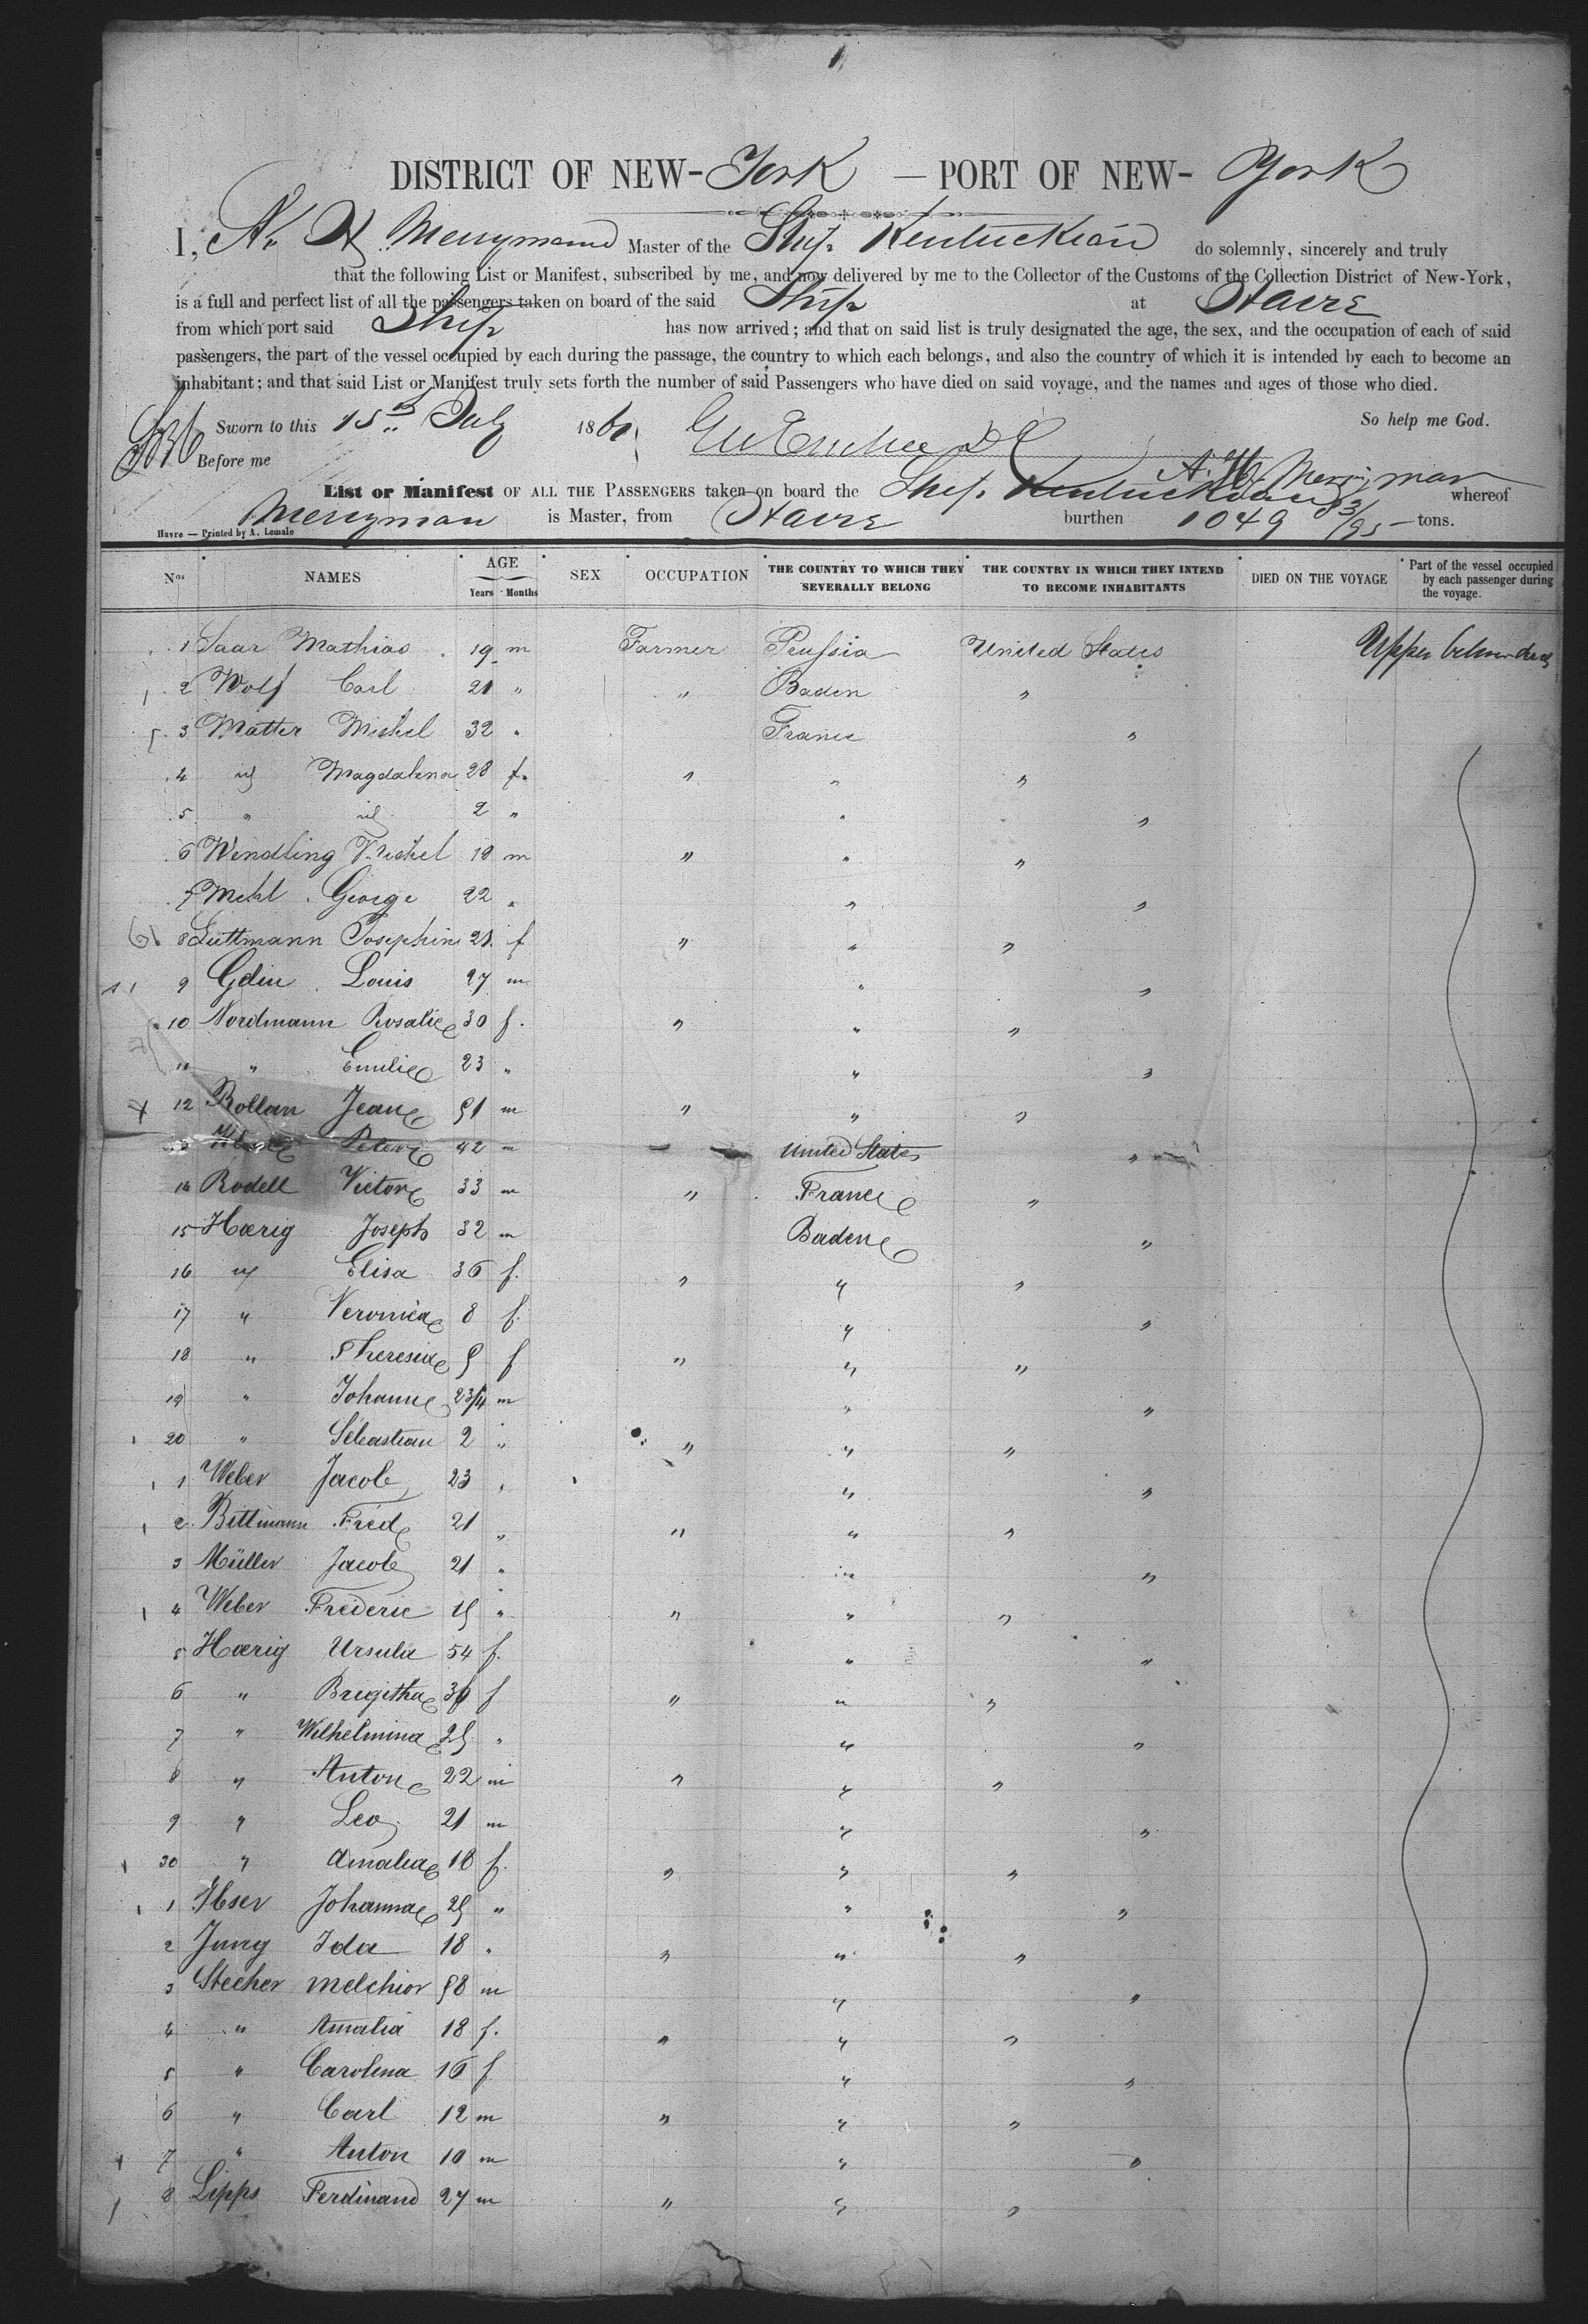 1
DISTRICT OF NEW-York — PORT OF NEW-York
I, A. H. Merryman Master of the Ship Kentuckian do solemnly, sincerely and truly
that the following List or Manifest, subscribed by me, and now delivered by me to the Collector of the Customs of the Collection District of New-York,
is a full and perfect list of all the passengers taken on board of the said Ship at Havre
from which port said Ship has now arrived; and that on said list is truly designated the age, the sex, and the occupation of each of said
passengers, the part of the vessel occupied by each during the passage, the country to which each belongs, and also the country of which it is intended by each to become an
inhabitant; and that said List or Manifest truly sets forth the number of said Passengers who have died on said voyage, and the names and ages of those who died.
Sworn to this 15th July 186 So help me God.
Before me
A. H. Merryman
List or Manifest OF ALL THE PASSENGERS taken on board the Ship Kentuckian whereof
Merryman is Master, from Havre burthen 1049 83/95 tons.
Havre — Printed by A. Lemale
Nos NAMES AGE Years Months SEX OCCUPATION THE COUNTRY TO WHICH THEY SEVERALLY BELONG THE COUNTRY IN WHICH THEY INTEND TO BECOME INHABITANTS DIED ON THE VOYAGE Part of the vessel occupied by each passenger during the voyage.
1 Saar Mathias 19 m Farmer Prussia United States Upper between deck
2 Wolf Carl 21 " " Baden "
3 Matter Michel 32 " France "
4 id Magdalena 28 f. " " "
5 " id 2 " " "
6 Wendling Michel 18 m " " "
7 Mehl George 22 " " "
8 Guttmann Josephine 21 f " " "
9 Louis 27 m " "
10 Nordmann Rosalie 30 f. " " "
11 " Emilie 23 " " "
12 Rollan Jean 51 m " " "
Peter 42 m United States "
14 Rodell Victor 33 m " France "
15 Hærig Joseph 32 m Baden "
16 ux Elisa 36 f. " " "
17 " Veronica 8 f. " "
18 " Theresia 5 f " " "
19 " Johann 2 3/4 m " "
20 " Sebastian 2 " " " "
1 Weber Jacob 23 " " "
2 Bittmann Fred 21 " " " "
3 Müller Jacob 21 " " "
4 Weber Frederic 15 " " " "
5 Hærig Ursula 54 f. " "
6 " Bregitha 30 f " " "
7 " Wilhelmina 25 " " "
8 " Anton 22 m " " "
9 " Leo 21 m " "
30 " Amalia 18 f. " " "
1 Johanna 25 " " "
2 Jung Ida 18 " " " "
3 Stecher Melchior 58 m " "
4 " Amalia 18 f. " " "
5 " Carolina 16 f " "
6 " Carl 12 m " " "
7 " Anton 10 m " "
8 Lipps Ferdinand 27 m " " "